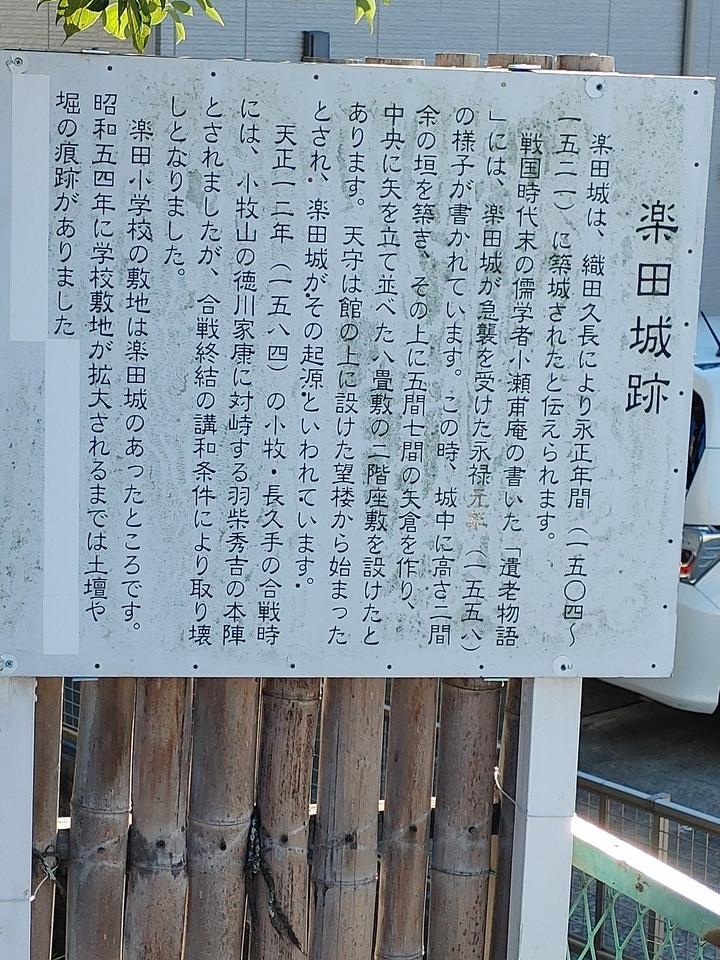 楽田城跡
楽田城は、織田久長により永正年間（一五〇四～
一五二一）に築城されたと伝えられます。
戦国時代末の儒学者小瀬甫庵の書いた「遺老物語
」には、楽田城が急襲を受けた永禄元年（一五五八）
の様子が書かれています。この時、城中に高さ二間
余の垣を築き、その上に五間七間の矢倉を作り、
中央に矢を立て並べた八畳敷の二階座敷を設けたと
あります。天守は館の上に設けた望楼から始まった
とされ、楽田城がその起源といわれています。
天正一二年（一五八四）の小牧・長久手の合戦時
には、小牧山の徳川家康に対峙する羽柴秀吉の本陣
とされましたが、合戦終結の講和条件により取り壊
しとなりました。
楽田小学校の敷地は楽田城のあったところです。
昭和五四年に学校敷地が拡大されるまでは土壇や
堀の痕跡がありました